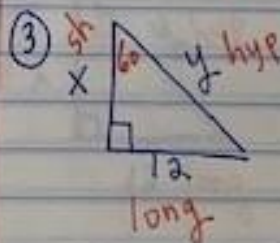 3 sh
60 y hyp
x
12
long